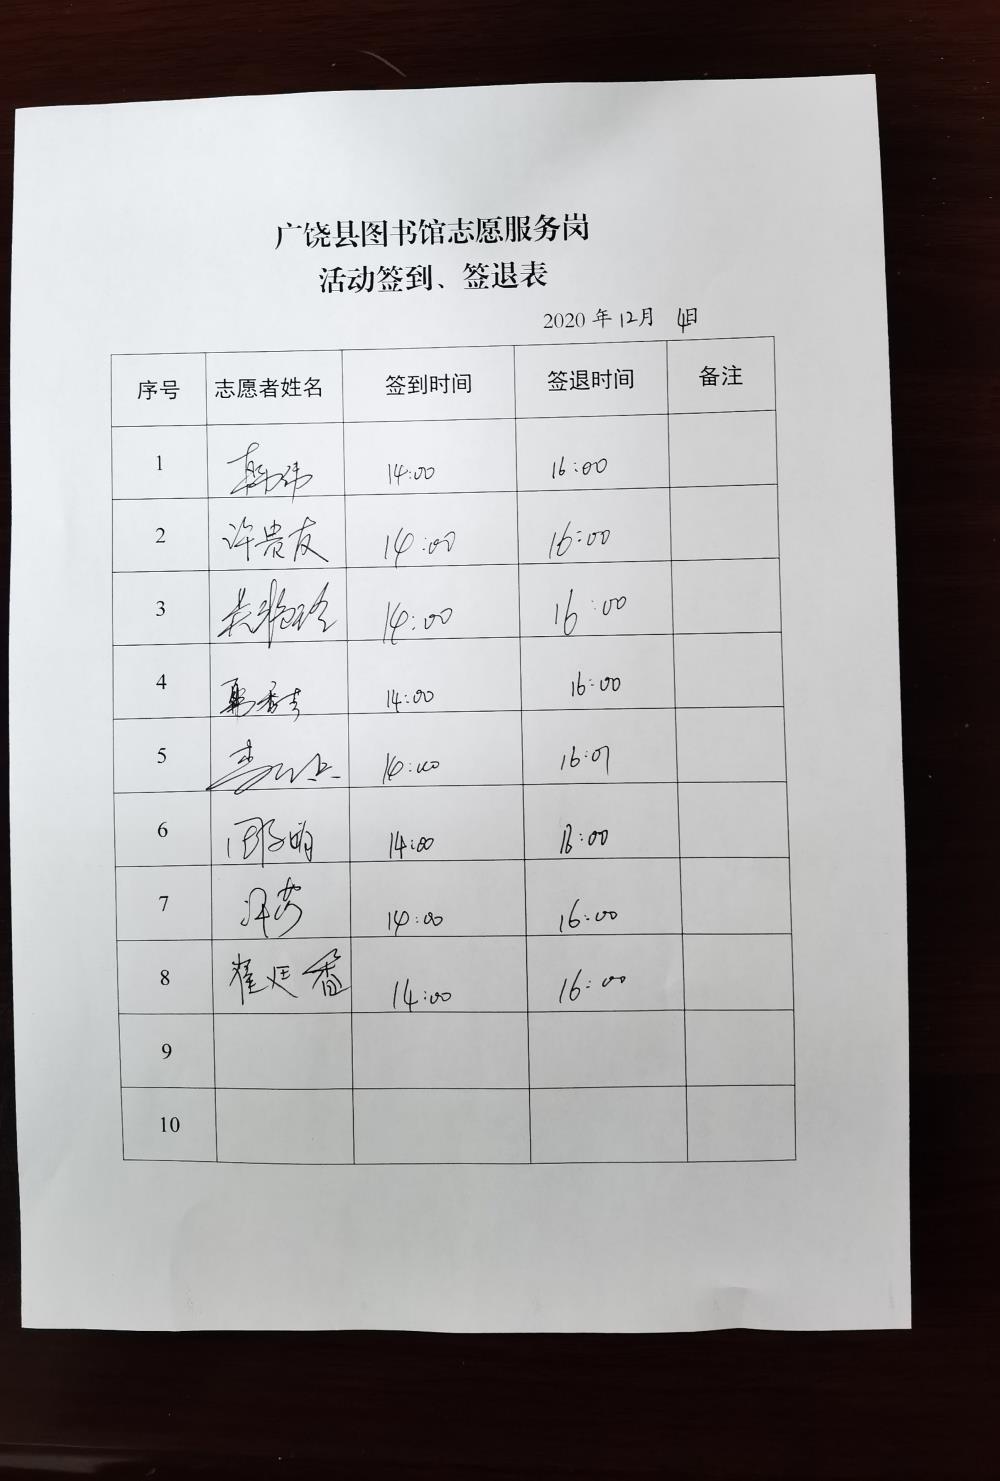 广饶县图书馆志愿服务岗
活动签到、签退表
2020 年 12月 4日
序号 志愿者姓名 签到时间 签退时间 备注
1 韩伟 14:00 16:00
2 许贵友 14:00 16:00
3 14:00 16:00
4 14:00 16:00
5 14:00 16:01
6 14:00 16:00
7 14:00 16:00
8 翟廷香 14:00 16:00
9
10